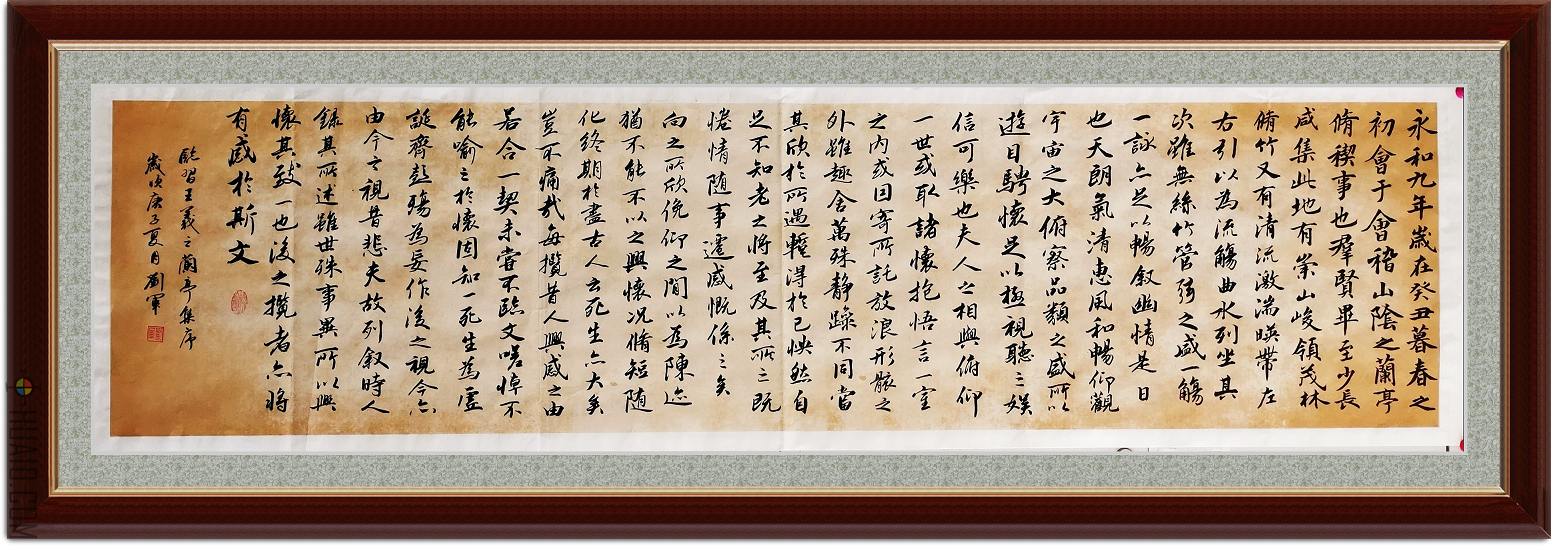 永和九年歲在癸丑暮春之
初會于會稽山陰之蘭亭
脩稧事也羣賢畢至少長
咸集此地有崇山峻領茂林
脩竹又有清流激湍暎帶左
右引以為流觴曲水列坐其
次雖無絲竹管弦之盛一觴
一詠亦足以暢敘幽情是日
也天朗氣清惠風和暢仰觀
宇宙之大俯察品類之盛所以
遊目騁懷足以極視聽之娛
信可樂也夫人之相與俯仰
一世或取諸懷抱悟言一室
之內或因寄所託放浪形骸之
外雖趣舍萬殊靜躁不同當
其欣於所遇蹔得於己怏然自
足不知老之將至及其所之既
惓情随事遷感慨係之矣
向之所欣俛仰之間以為陳迹
猶不能不以之興懷況脩短随
化終期於盡古人云死生亦大矣
豈不痛哉每攬昔人興感之由
若合一契未嘗不臨文嗟悼不
能喻之於懷固知一死生為虛
誕齊彭殤為妄作後之視今亦
由今之視昔悲夫故列敘時人
錄其所述雖世殊事異所以興
懷其致一也後之攬者亦將
有感於斯文
臨習王羲之蘭亭集序
歲次庚子夏月劉軍